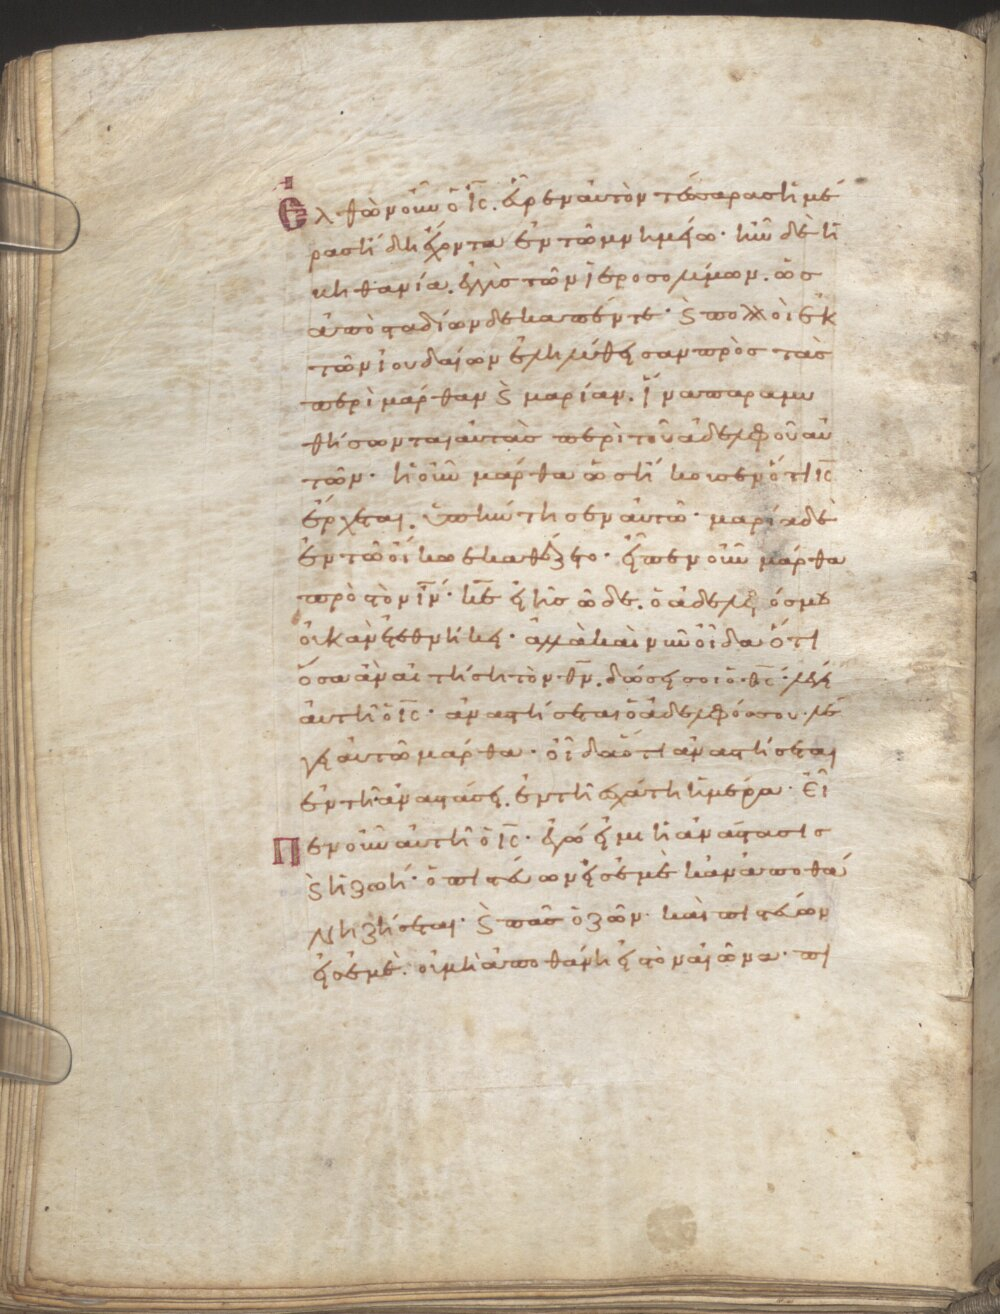 Ἐλθὼν οὖν ὁ ῙϹ. εὗρεν αὐτὸν τέσσαρας ἡμέ
ρας ἤδη ἔχοντα ἐν τῶ μνημείω· ἦν δὲ ἡ
βηθανία. ἐγγὺς τῶν ἱεροσολύμων. ὡς
ἀπὸ σταδίων δεκαπέντε· ϗ πολλοὶ ἐκ
τῶν ἰουδαίων ἐληλύθεισαν πρὸς τὰς
περὶ μάρθαν ϗ μαρίαν. ἵνα παραμυ
θήσωνται αὐτὰς περὶ τοῦ ἀδελφοῦ αὐ
τῶν· ἡ οὖν μάρθα ὡς ἤκουσεν ὅτι ῙϹ
ἔρχεται. ὑπήντησεν αὐτῶ· μαρία δὲ
ἐν τῶ οἴκω ἐκαθέζετο· εἶπεν οὖν μάρθα
πρὸς τὸν ῙΝ· ΚΕ εἰ ἦς ὧδε. ὁ ἀδελφός μου
οὐκ ἂν ἐτεθνήκει· ἀλλὰ καὶ νῦν οἶδα ὅτι
ὅσα ἂν αἰτήση τὸν ΘΝ. δώσει σοι ὁ ΘϹ· λέγει
αὐτῆ ὁ ῙϹ· ἀναστήσεται ὁ ἀδελφός σου· λέ
γει αὐτῶ μάρθα· οἶδα ὅτι ἀναστήσεται
ἐν τῆ ἀναστάσει. ἐν τῆ ἐσχάτη ἡμέρα· Εἶ
πεν οὖν αὐτῆ ὁ ῙϹ· ἐγώ εἰμι ἡ ἀνάστασις
ϗ ἡ ζωή· ὁ πιστεύων εἰς ἐμὲ κἂν ἀποθά
νη ζήσεται· ϗ πᾶς ὁ ζῶν· καὶ πιστεύων
εἰς ἐμὲ. οὐ μὴ ἀποθάνη εἰς τὸν αἰῶνα· πι